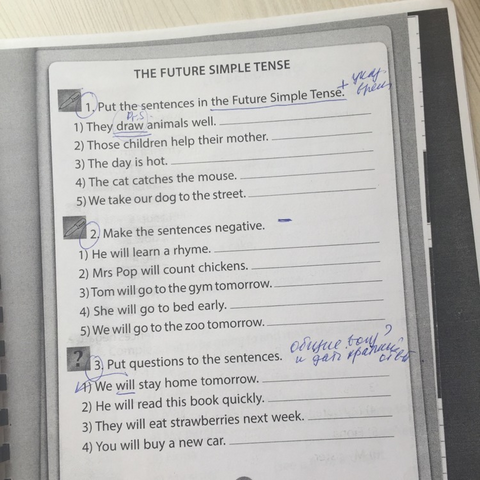 THE FUTURE SIMPLE TENSE
1. Put the sentences in the Future Simple Tense. +
1) They draw animals well.
2) Those children help their mother.
3) The day is hot.
4) The cat catches the mouse.
5) We take our dog to the street.
2. Make the sentences negative. –
1) He will learn a rhyme.
2) Mrs Pop will count chickens.
3) Tom will go to the gym tomorrow.
4) She will go to bed early.
5) We will go to the zoo tomorrow.
? 3. Put questions to the sentences. общие ?
и дать краткий ответ
1) We will stay home tomorrow.
2) He will read this book quickly.
3) They will eat strawberries next week.
4) You will buy a new car.